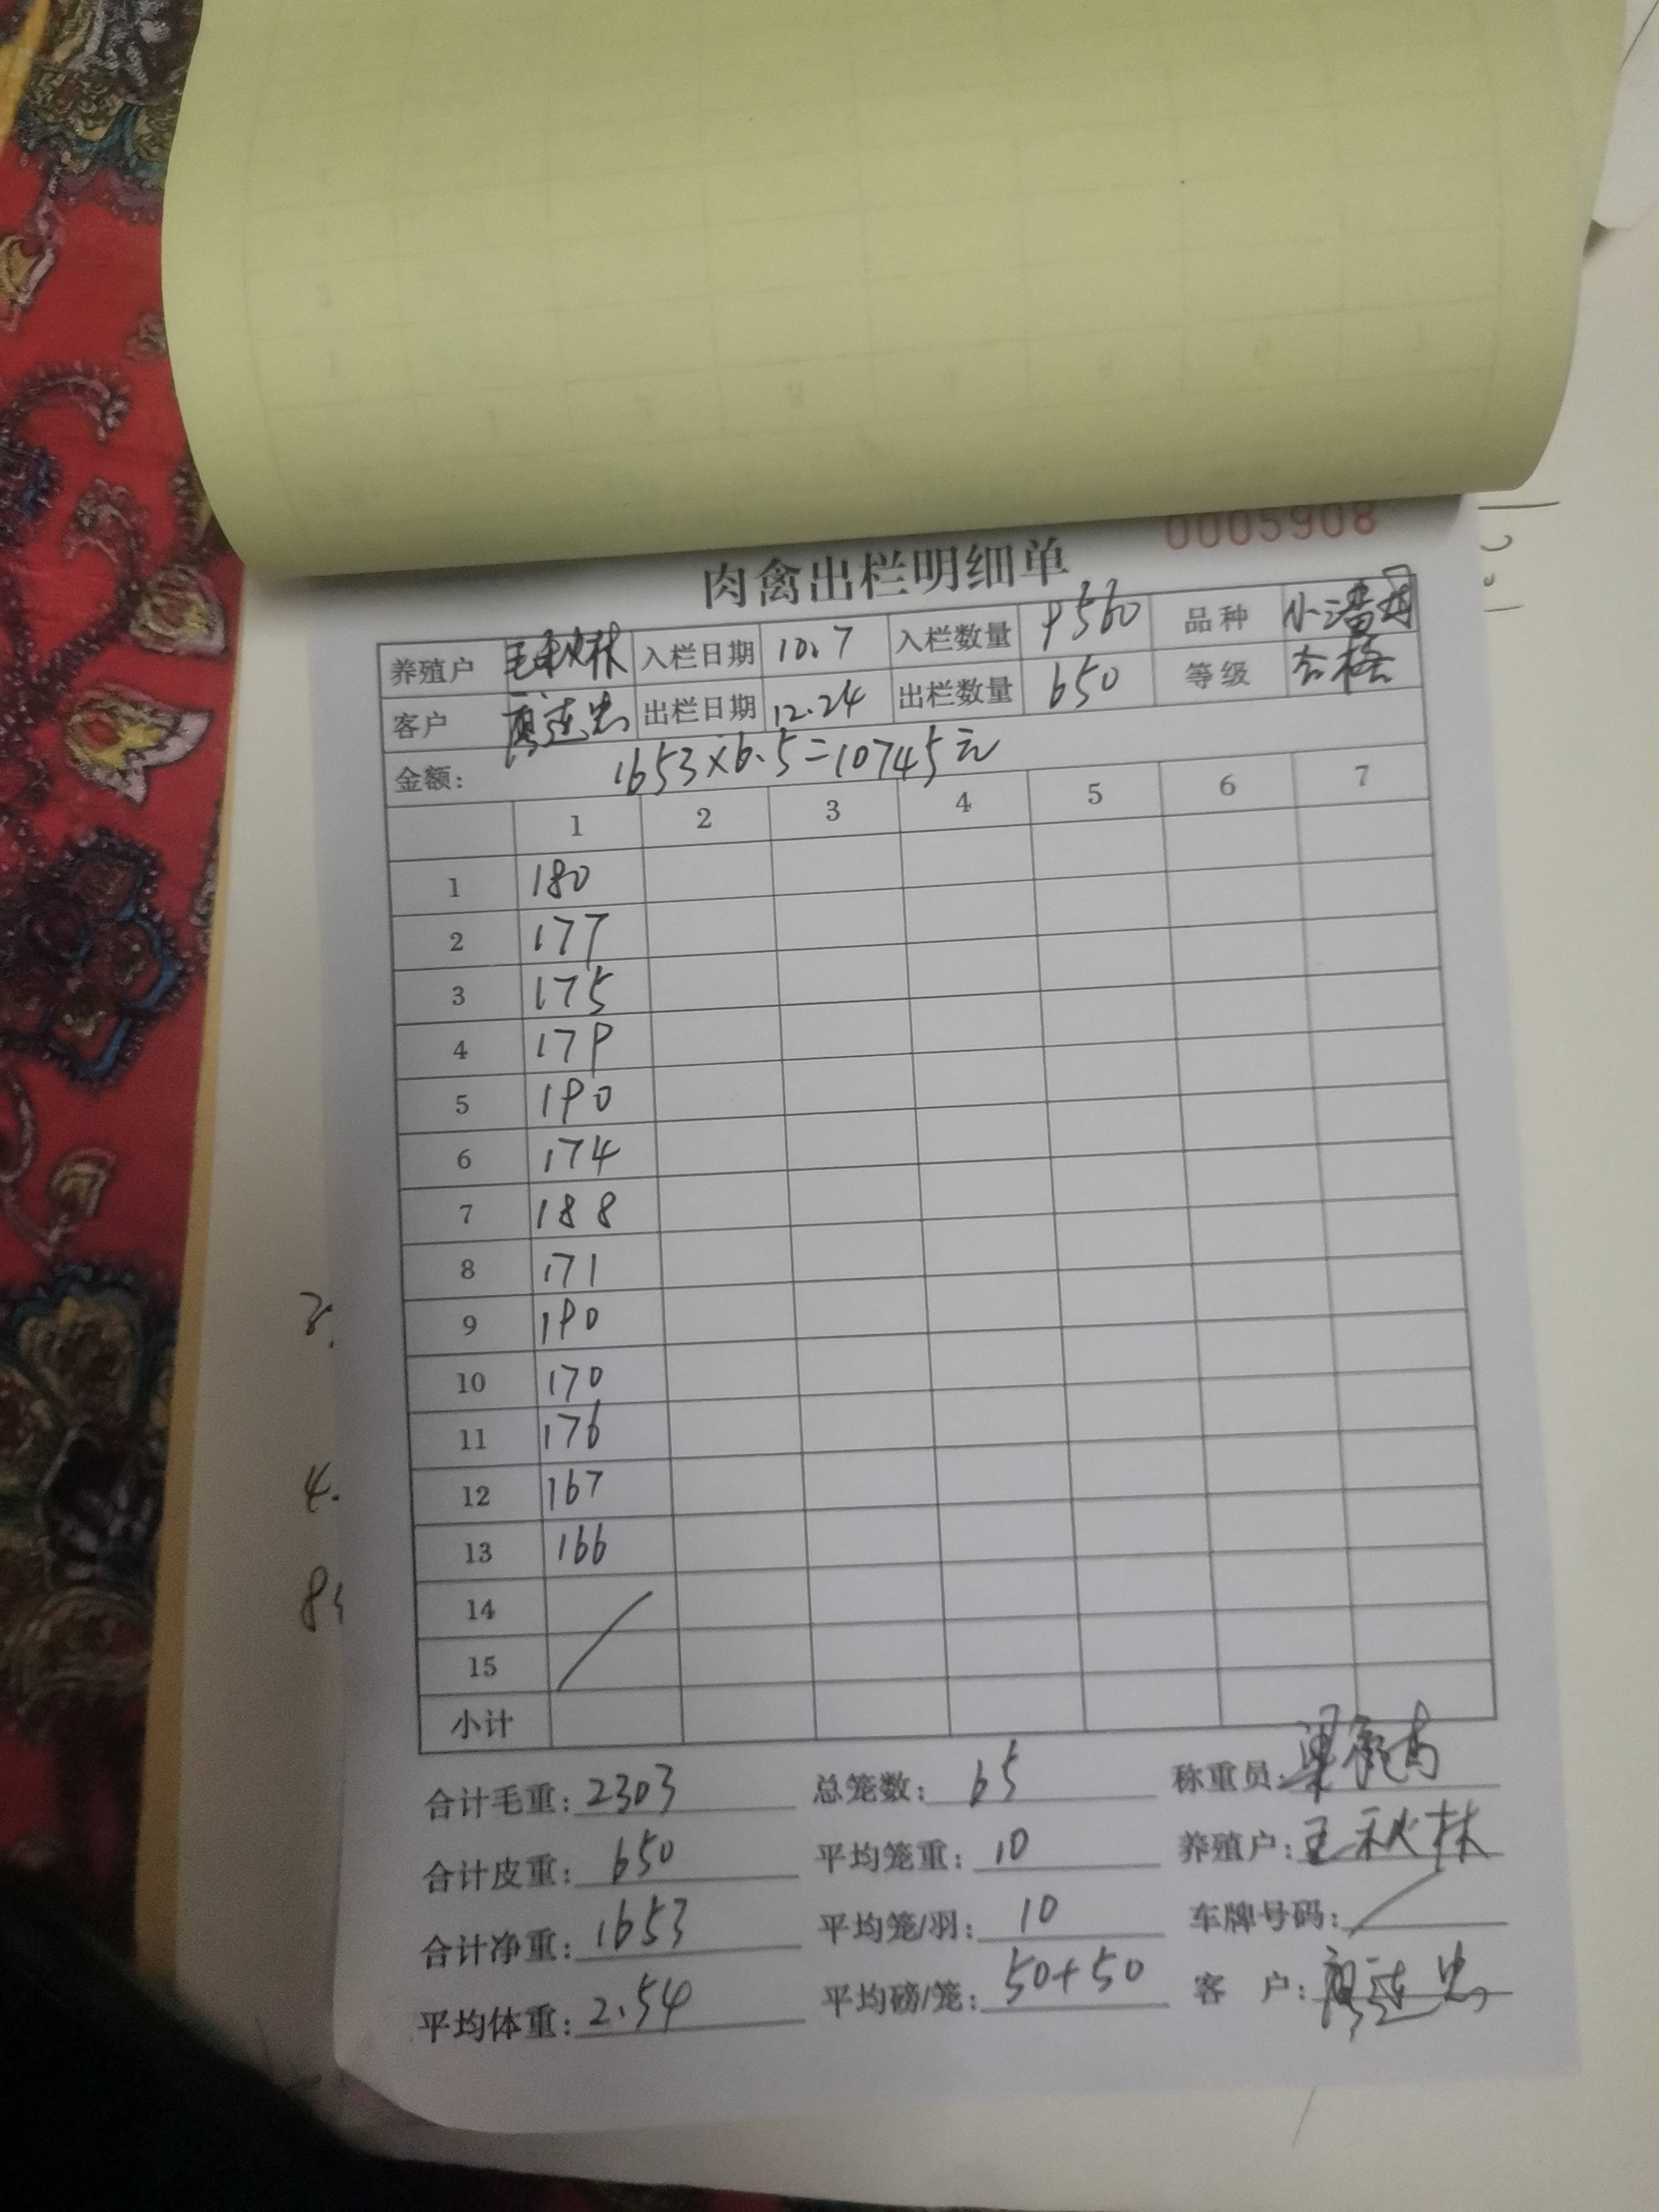 0005908
肉禽出栏明细单
养殖户 王秋林 入栏日期 10.7 入栏数量 9560 品种 小潘母
客户 廖连忠 出栏日期 12.24 出栏数量 650 等级 合格
金额: 1653×6.5=10745元
1 2 3 4 5 6 7
1 180
2 177
3 175
4 179
5 190
6 174
7 188
8 171
9 190
10 170
11 176
12 167
13 166
14
15
小计
合计毛重: 2303 总笼数: 65 称重员:
合计皮重: 650 平均笼重: 10 养殖户: 王秋林
合计净重: 1653 平均笼/羽: 10 车牌号码:
平均体重: 2.54 平均磅/笼: 50+50 客 户: 廖连忠